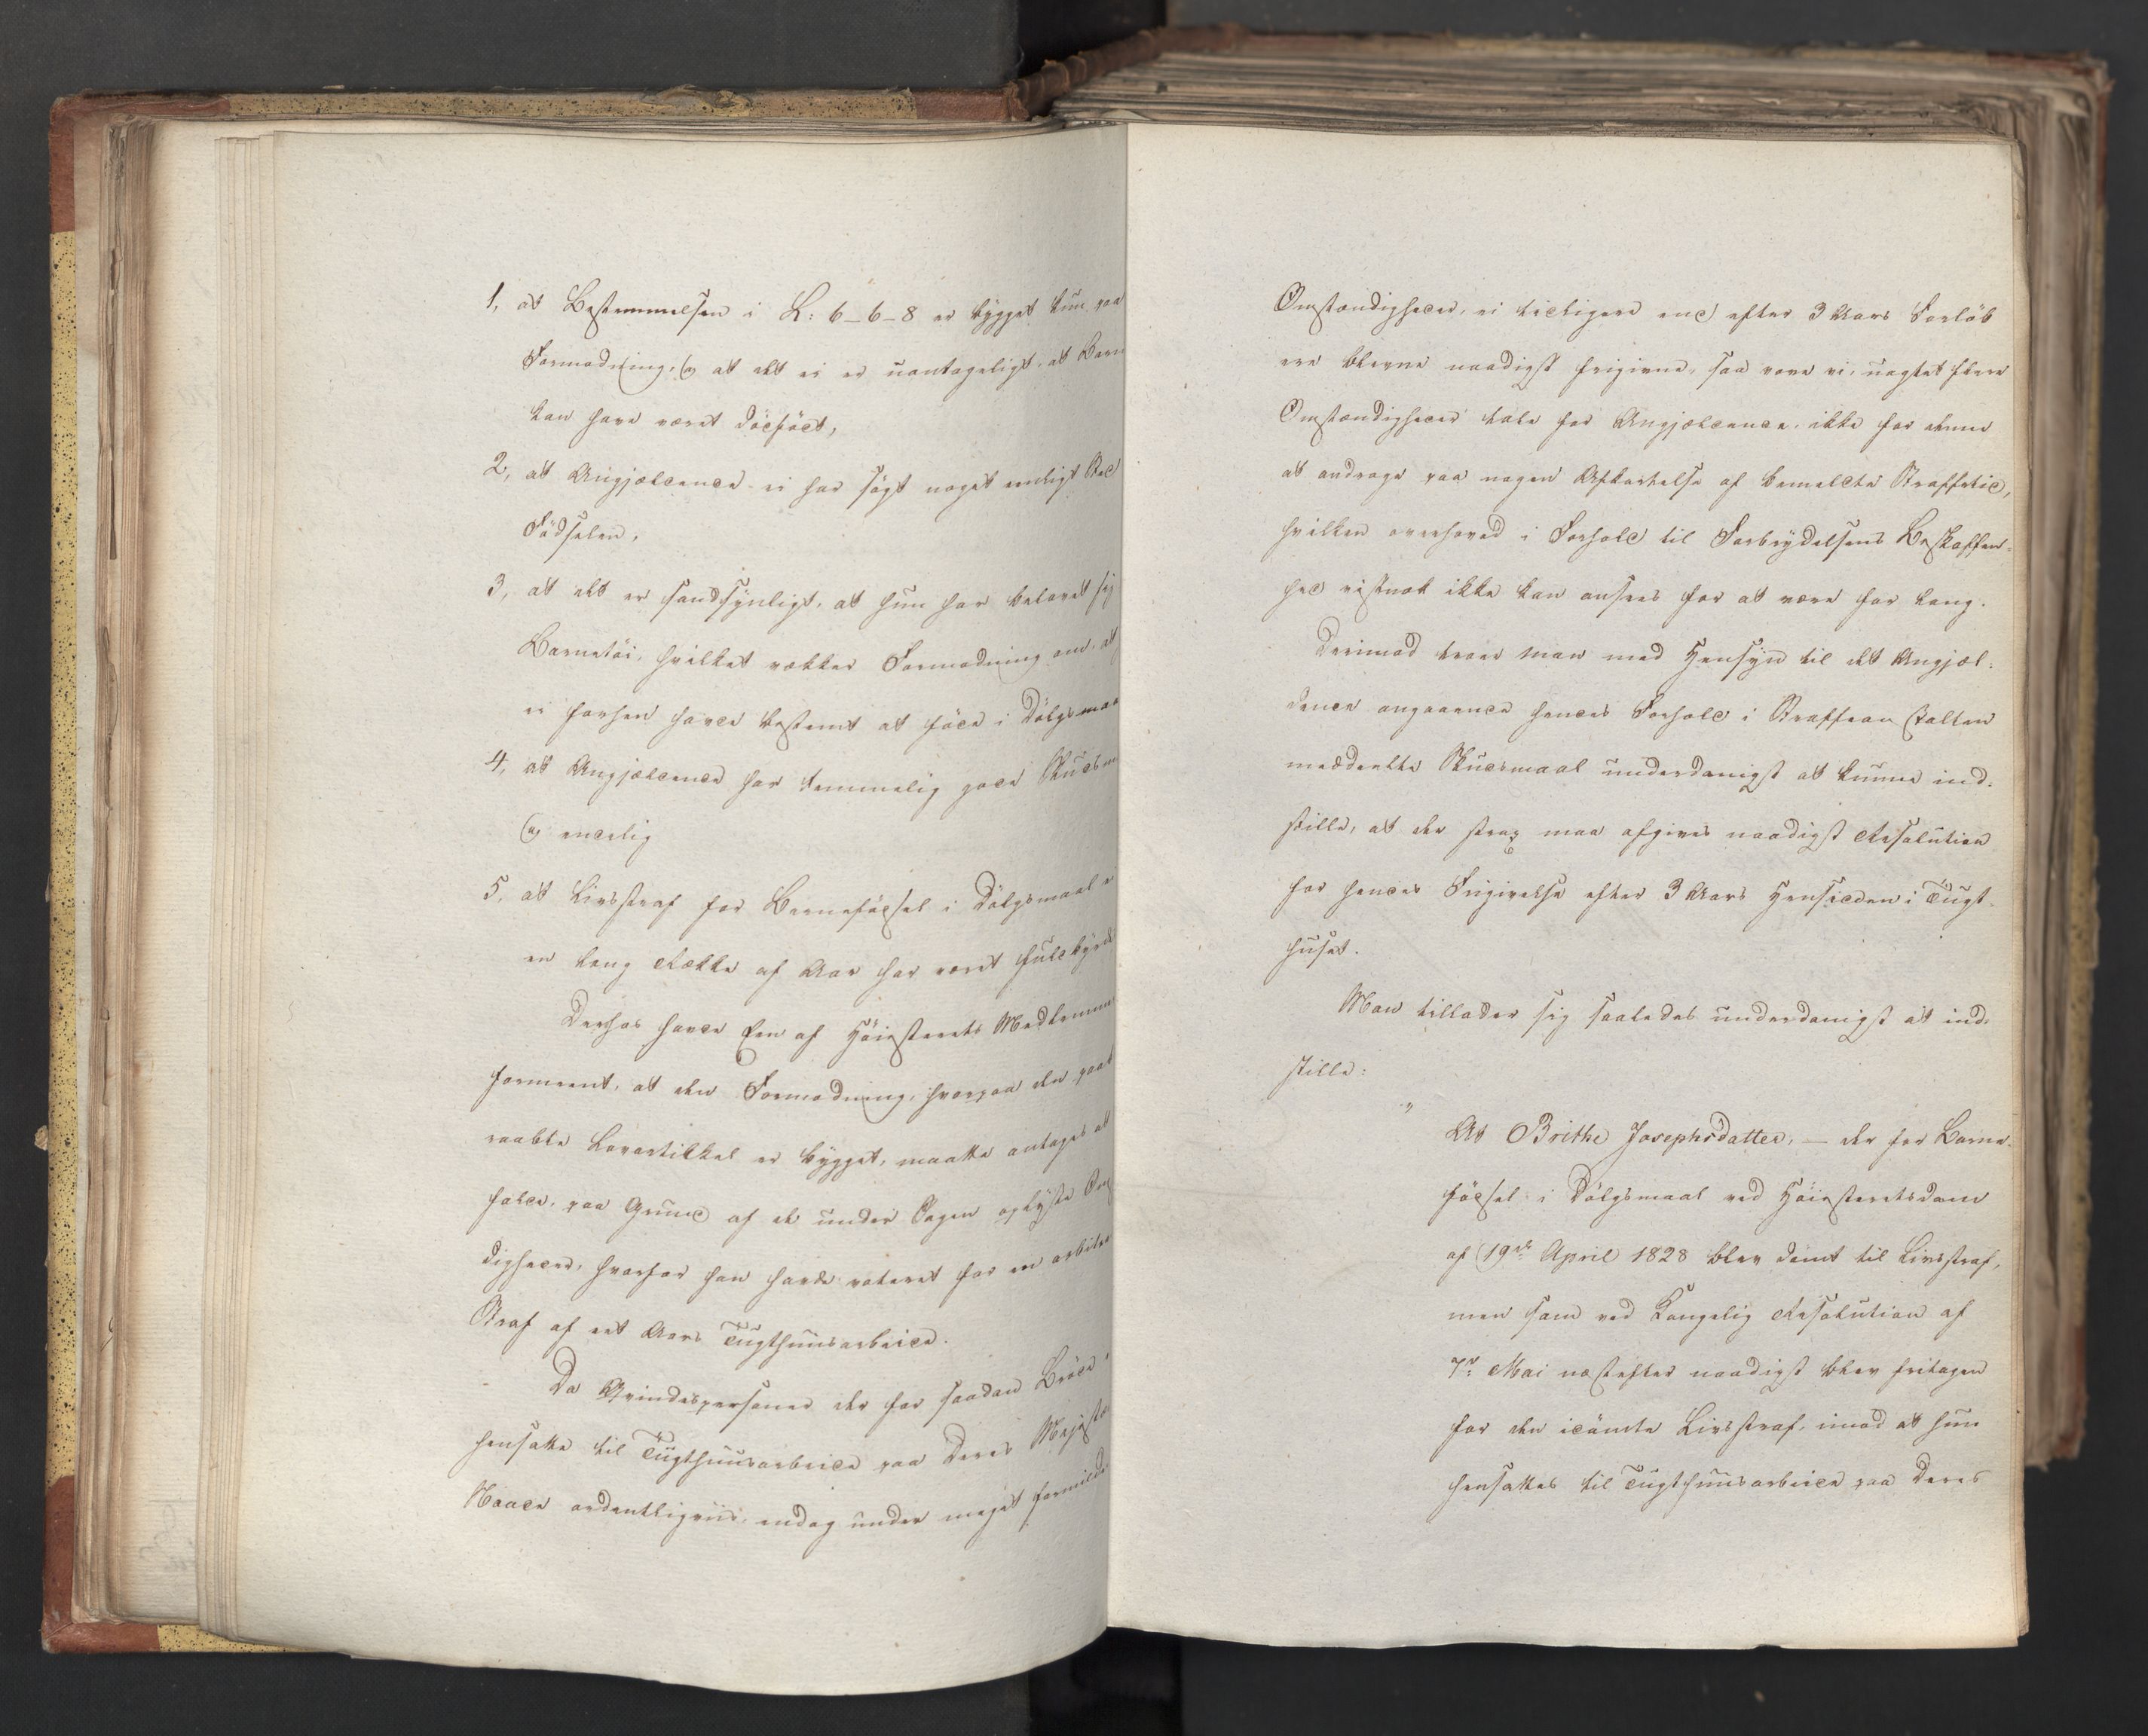 1, at Bestemmelsen i L: 6_6_8 er bygget kun paa
Formodning, og at det ei er uantageligt, at Barn
kan have været dödfödt,
2, at Angjældende ei har sögt noget eensligt Sted
Födselen,
3, at det er sandsynligt, at hun har belavet sig
Barnetöi, hvilket vækker Formodning om, at
ei forhen havde bestemt at föde i Dölgsmaa
4, at Angjældende har temmelig gode Skudsm
og endelig
5, at Livsstraf for Barnefödsel i Dölgsmaal e
en lang Række af Aar har været fuldbyrd
Derhos havde Een af Höiesterets Medlemme
formeent, at den Formodning, hvorpaa den paa
raabte Lovartikkel er bygget, maatte antages at
falde, paa Grund af de under Sagen oplyste Om
digheder, hvorfor han havde voteret for en arbitr
Straf af eet Aars Tugthuusarbeide.
Da Qvindespersoner der for saadan Bröde i
hensatte til Tugthuusarbeide paa Deres Majestæ
Naade ordentligviis, endog under meget formilde
Omstændigheder, ei tidligere end efter 3 Aars Forlöb
ere blevne naadigst frigivne, saa vove vi, uagtet flere
Omstændigheder tale for Angjældende, ikke for denne
at andrage paa nogen Afkortelse af bemeldte Straffetid,
hvilken overhoved i Forhold til Forbrydelsens Beskaffen-
hed vistnok ikke kan ansees for at være for lang.
Derimod troer man med Hensyn til det Angjæl-
dende angaaende hendes Forhold i Straffeanstalten
meddeelte Skudsmaal underdanigst at kunne ind-
stille, at der strax maa afgives naadigst Resolution
for hendes Frigivelse efter 3 Aars Hensidden i Tugt-
huset.
Man tillader sig saaledes underdanigst at ind-
stille:
" At Brithe Josephsdatter, — der for Barne-
födsel i Dölgsmaal ved Höiesteretsdom
af 19de April 1828 blev dömt til Livsstraf,
men som ved Kongelig Resolution af
7de Mai næstefter naadigst blev fritagen
for den idömte Livsstraf, imod at hun
hensattes til Tugthuusarbeide paa Deres